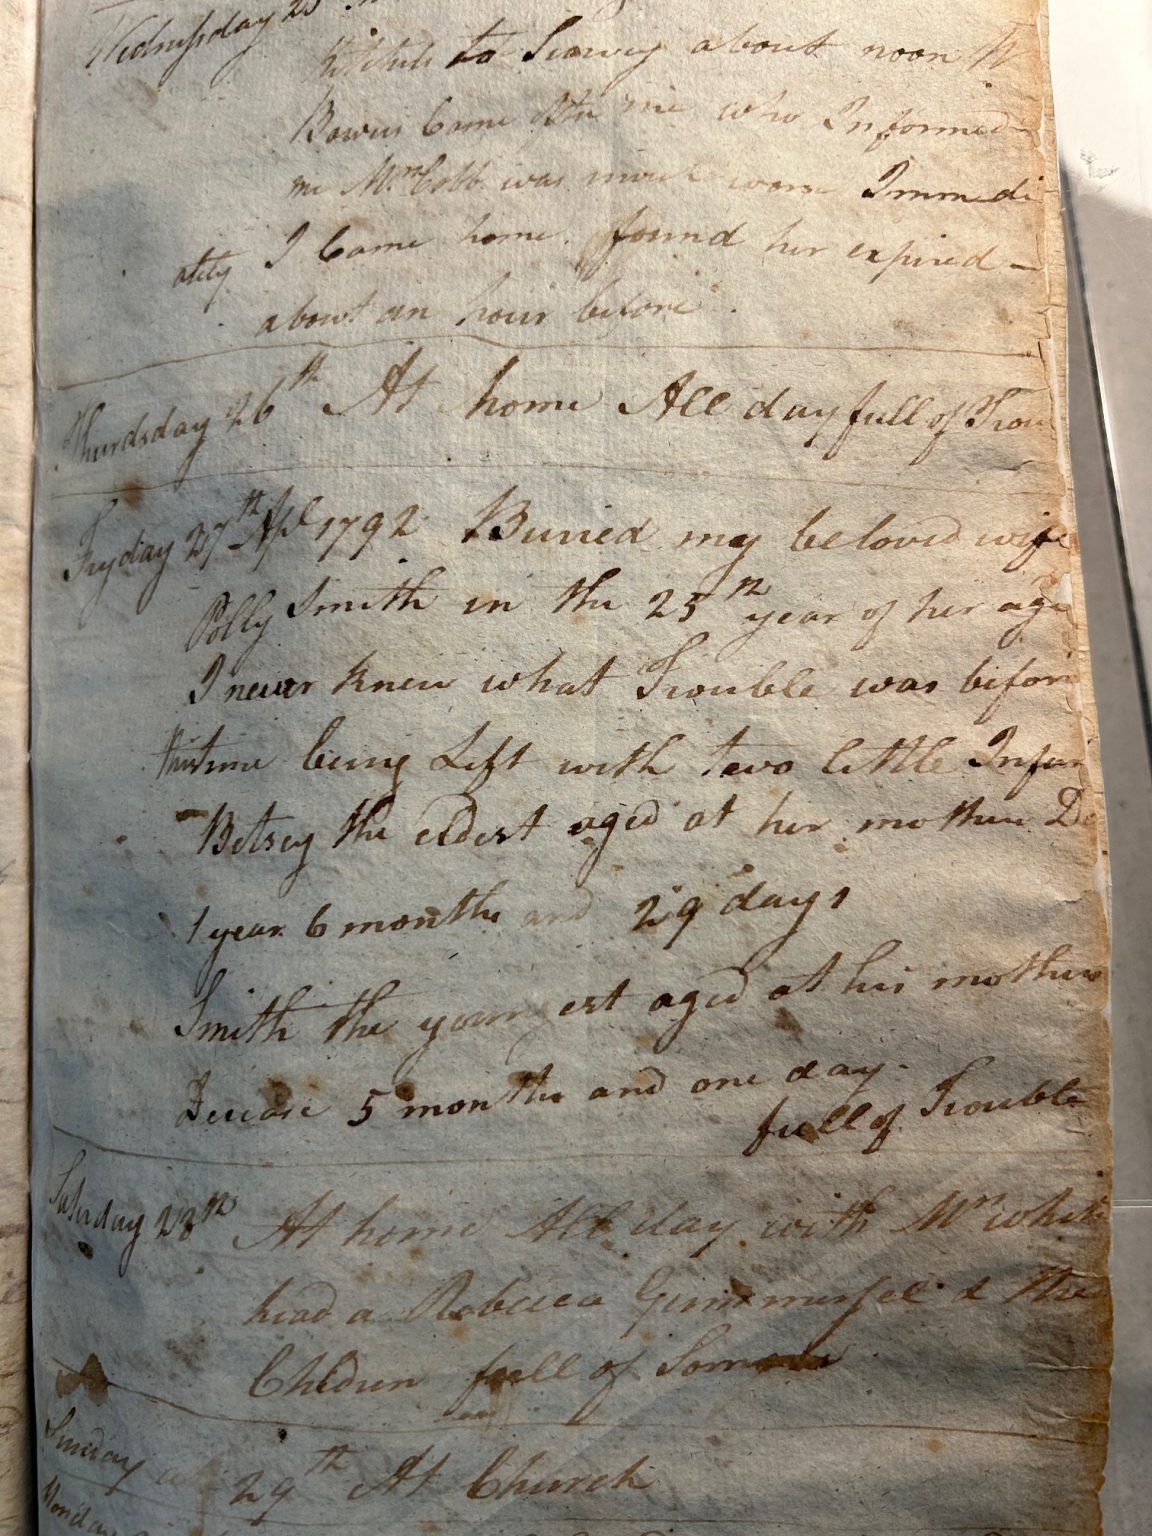 Wednesday 25
to Scarvey about noon
Bowers Came after me who Informed
me Mrs. Cobb was much worse Immedi
ately I Came home found her expired
about an hour before.
Thurdsday 26th At home All day full of Trou
Fryday 27th Apl 1792 Buried my beloved wife
Polly Smith in the 25th year of her age
I never knew what Trouble was before
this time being Left with two little Infan
Betsey the eldest aged at her mothers De
1 year 6 months and 29 days
Smith the youngest aged at his mothers
Decease 5 months and one day.
full of Trouble
Saturday 28th At home All day with Mr White
head a Rebecca & the
Children full of
Sunday 29th At Church
Monday